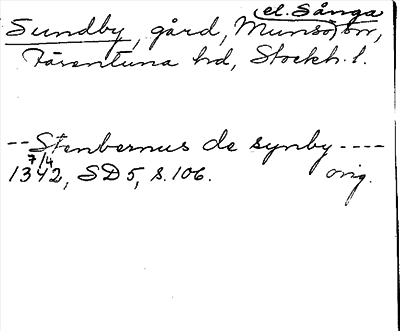 el. Sånga
Sundby, gård, Munsö sn,
Färentuna hd, Stockh. l.
-- Stenbernus de synby ----
7/4
1342, SD 5, s. 106. orig.